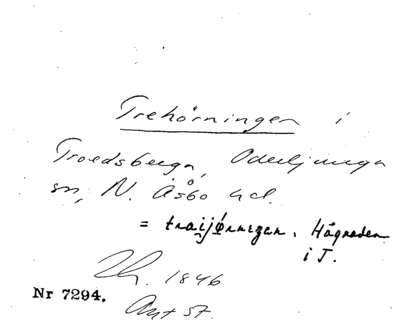 Trehörningen i
Troedsberga, Oderljunga
sn, N. Åsbo hd.
= traijørningen. Hågnaden
i T.
Th. 1846
Ant St.
Nr 7294.